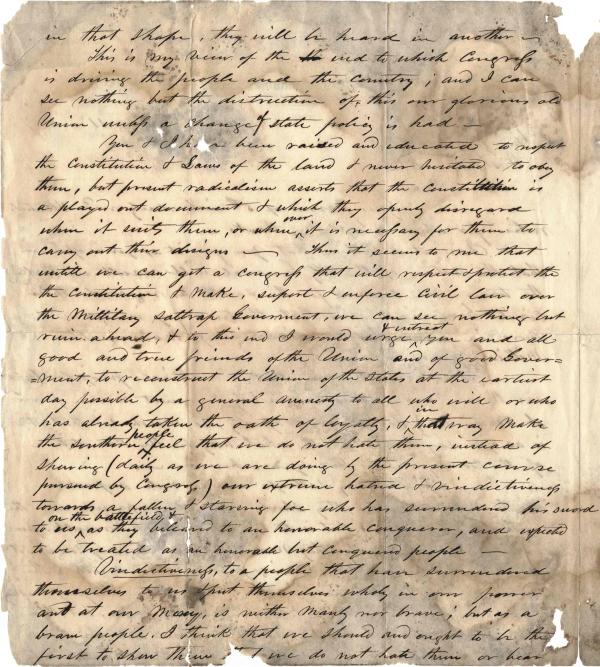 in that shape, they will be heard in another —
This is my view of the end to which Congress
is driving the people and the country; and I can
see nothing but the distruction of, this our glorious old
Union unless a change of state policy is had —
You & I have been raised and educated to respect
the Constitution & Laws of the land & never hesitated to obey
them, but present radicalism asserts that the Constitution is
a played out document & which they openly disregard
when it suits them, or when, over it is necessary for them to
carry out their designs — Thus it seems to me that
untill we can get a congress that will respect & protect the
the Constitution & make, suport & enforce Civil law over
the Millitary sattrap Goverment, we can see nothing but
ruin ahead, & to this end I would urge & entreat you and all
good and true friends of the Union and of good Gover=
=ment, to reconstruct the Union of the States at the earliest
day possible by a general amnesty to all who will or who
has already taken the oath of loyalty, & in that way make
the southern people feel that we do not hate them, instead of
showing (daily as we are doing by the present course
pursued by Congress) our extreme hatred & vindictiveness
towards a fallen & starving foe who has surrendered his sword
to us on the battlefield & as they believed to an honorable conqueror, and expected
to be treated as an honorable but conquered people —
Vindictiveness, to a people that have surrendered
themselves to us & put themselves wholy in our power
and at our Mercy, is neither manly nor brave; but as a
brave people. I think that we should and ought to be the
first to show them we do not hate them or bear